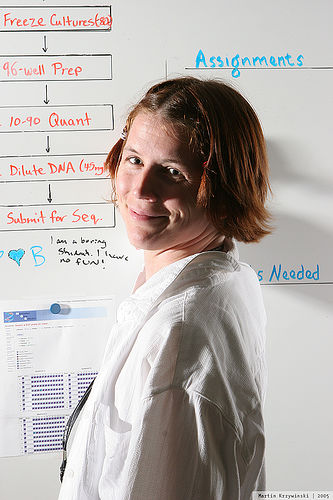 Freeze Cultures(-80)
96-well Prep
Assignments
10-90 Quant
Dilute DNA (45ng
Submit for Seq.
B
I am a boring
student. I have
no fun!
s Needed
Martin Krzywinski | 2005